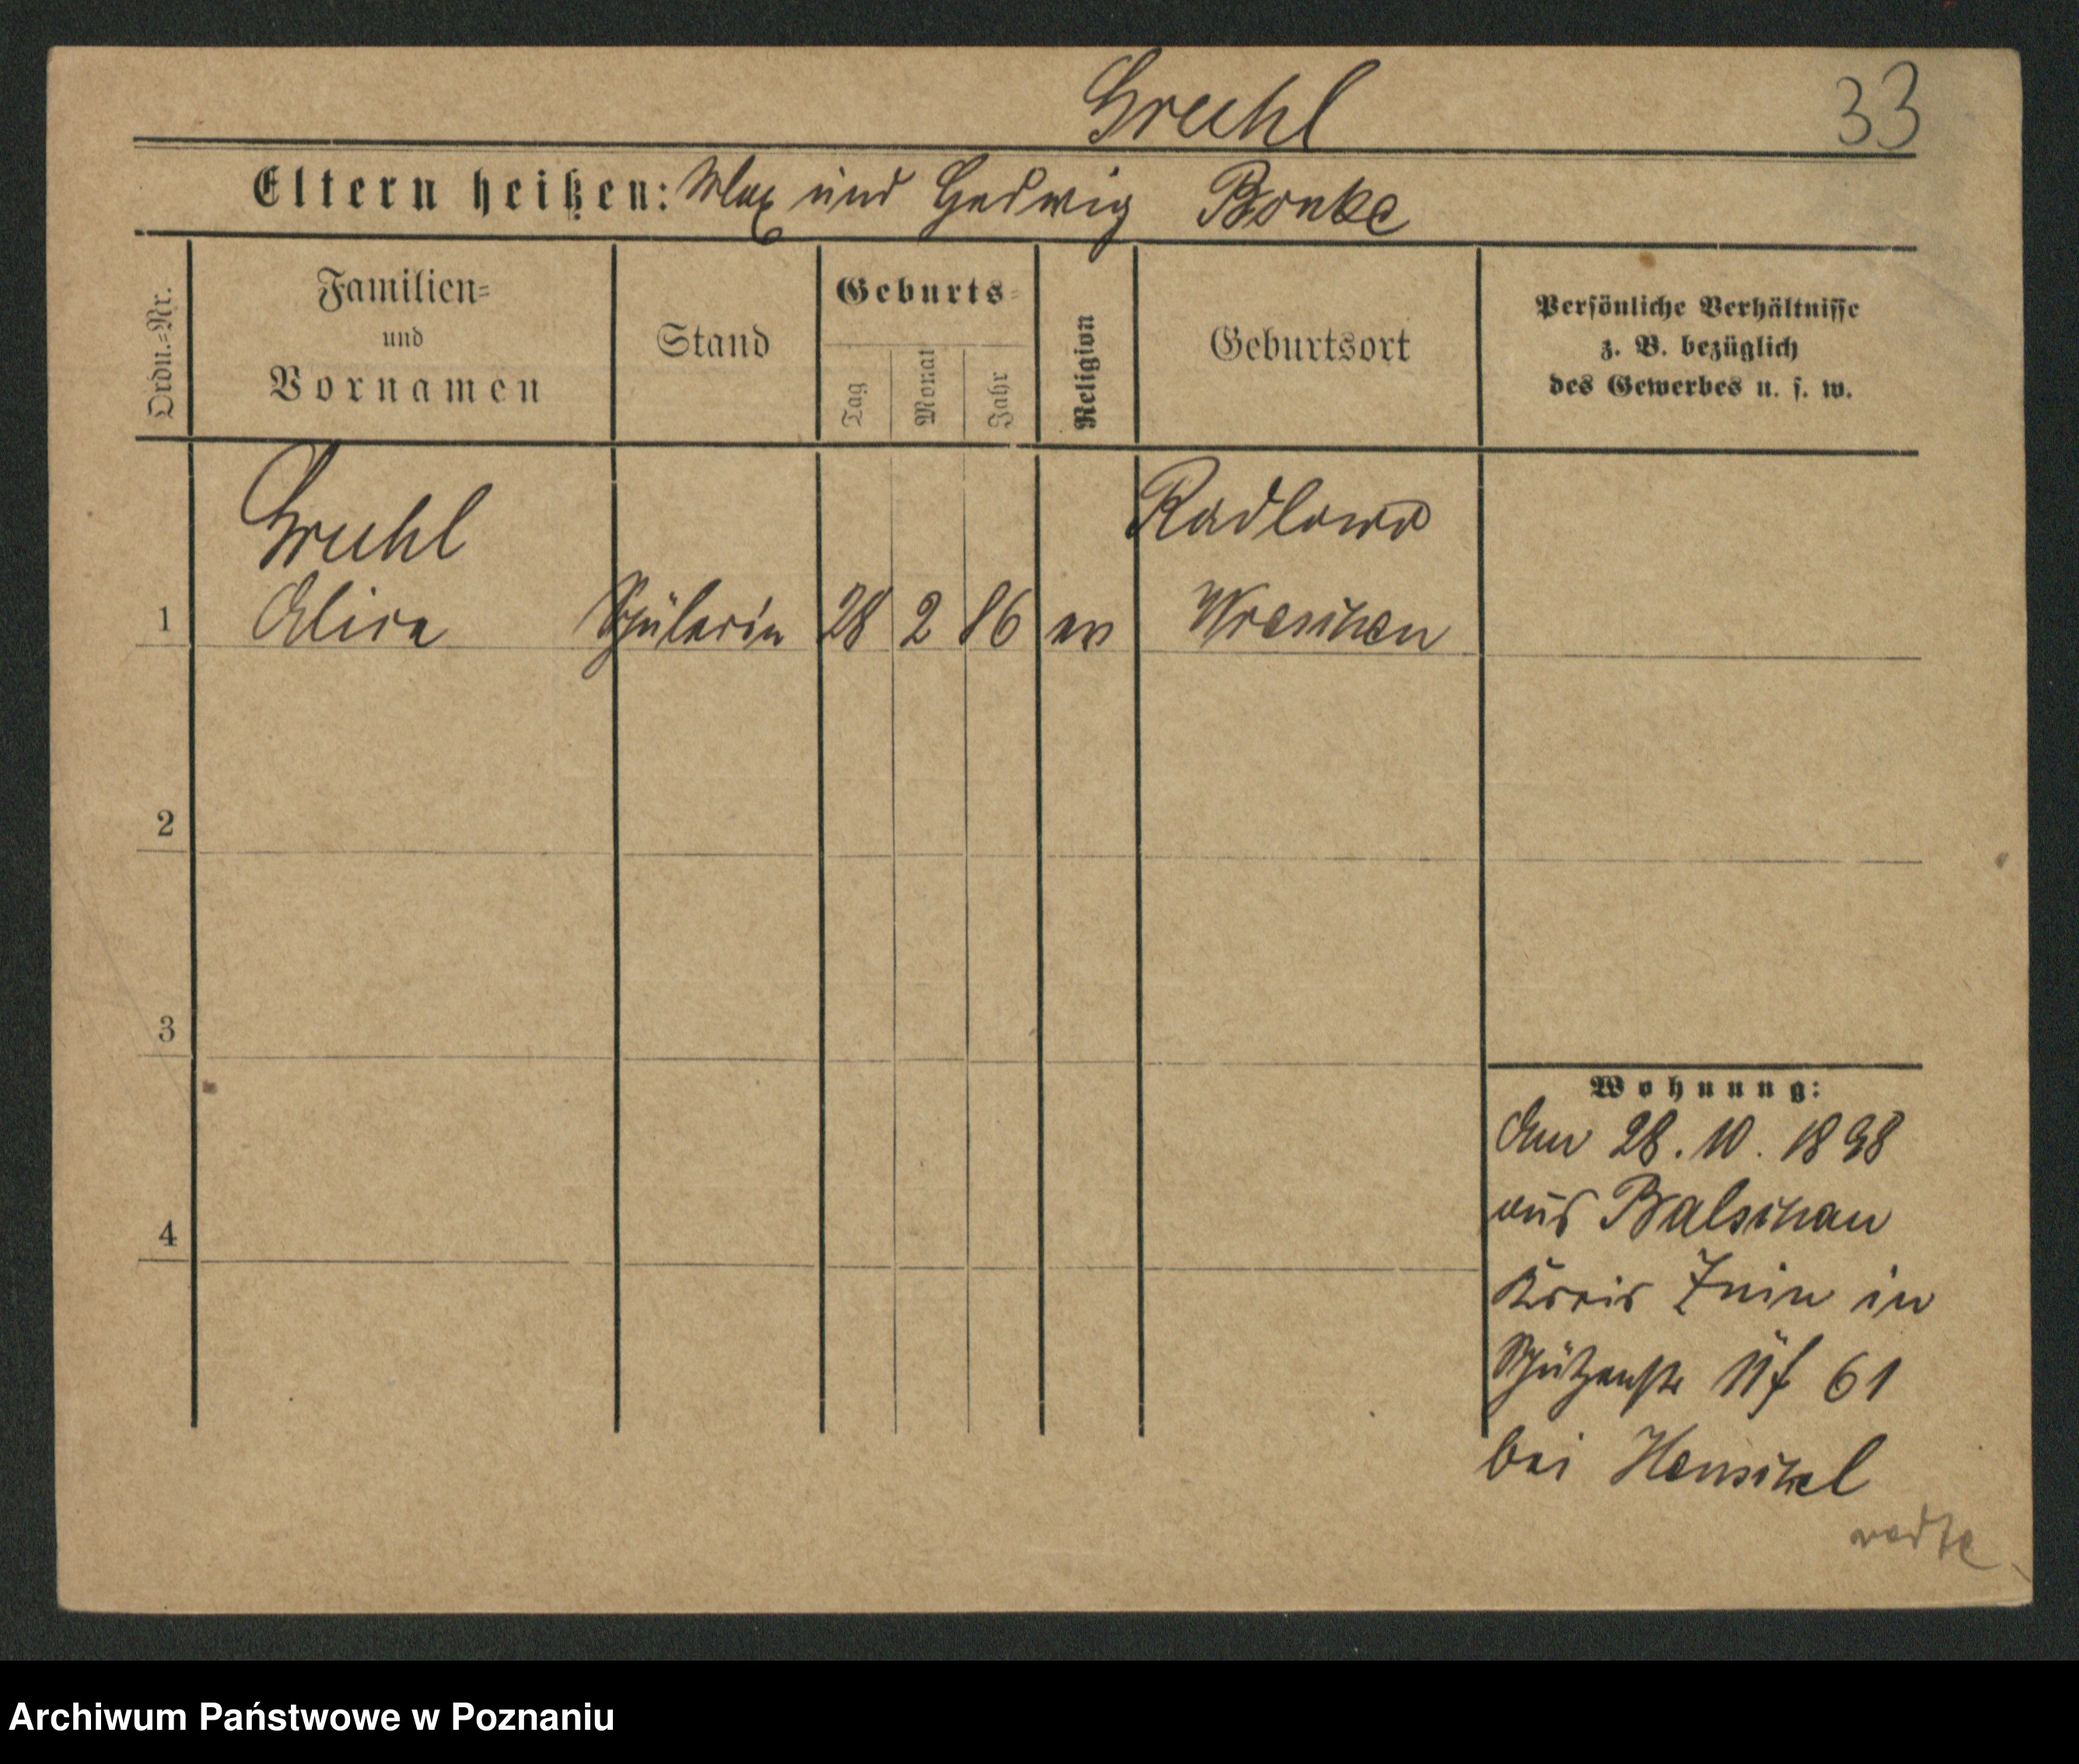 Gruhl 33
Eltern heißen: Max und Hedwig Bonke
Ordn.=Nr.
Familien=
und
Vornamen
Stand
Geburts=
Tag
Monat
Jahr
Religion
Geburtsort
Persönliche Verhältnisse
z. B. bezüglich
des Gewerbes u. s. w.
Gruhl Radlowo
1 Alice Schülerin 28 2 86 ev Wreschen
2
3
4
Wohnung:
Am 28. 10. 1898
aus Balschau
Kreis Znin in
Schützenstr 61
bei Henschel
Archiwum Państwowe w Poznaniu